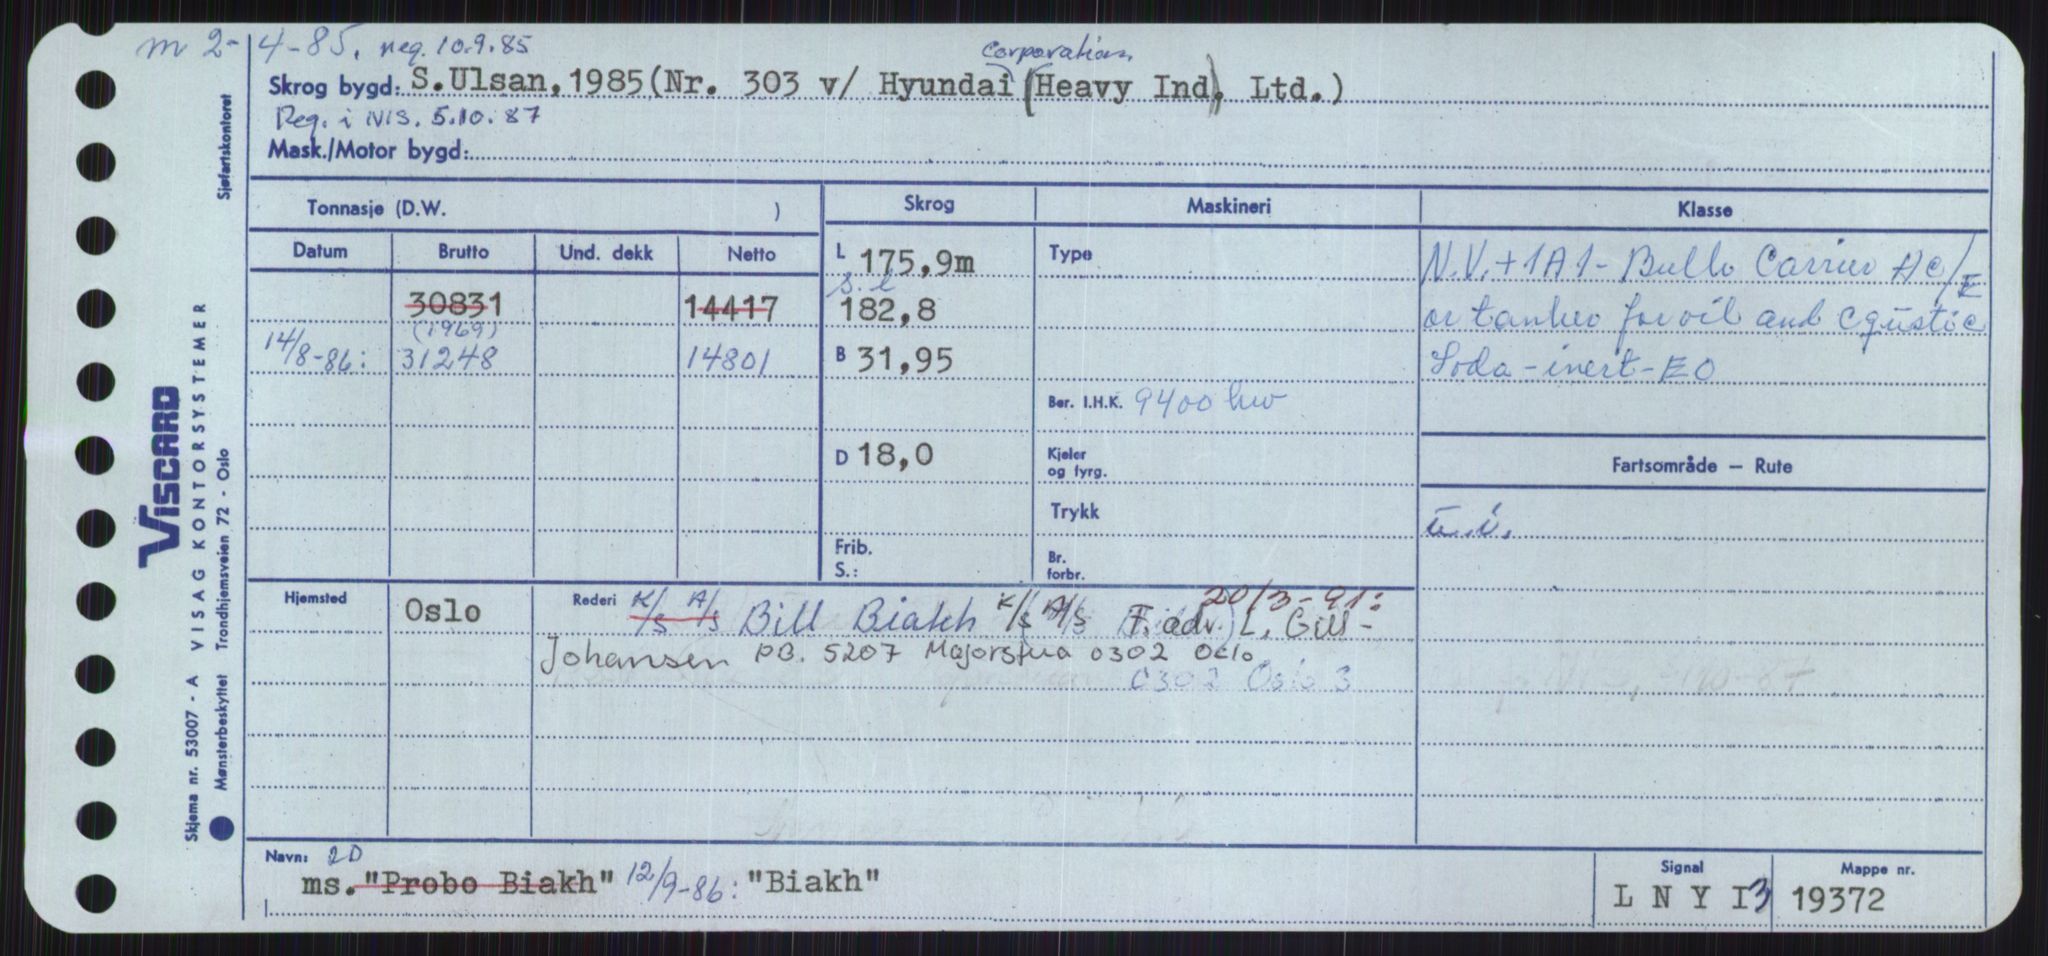 m 2-4-85. reg. 10.9.85
Corporation
Skrog bygd: S.Ulsan, 1985(Nr. 303 v/ Hyundai (Heavy Ind), Ltd.)
Reg. i NIS. 5.10.87
Mask./Motor bygd:
Sjøfartskontoret
VISCARD
VISAG KONTORSYSTEMER
Trondhjemsveien 72 - Oslo
Skjema nr. 53007 - A
Mønsterbeskyttet
Tonnasje (D.W. )
Skrog
Maskineri
Klasse
Datum Brutto Und. dekk Netto
L 175,9m
Type
N.V. + 1A1 - Bulk Carrier HC/E
30831 14417
S.l
182,8
or tanker for oil and caustic
(1969)
14/8-86: 31248 14801
B 31,95
Soda - inert - EO
Ber. I.H.K. 9400 kw
D 18,0
Kjeler
og fyrg.
Fartsområde — Rute
Trykk
u.i.
Frib.
S.:
Br.
forbr.
Hjemsted Oslo
Rederi K/S A/S Bill Biakh K/S (A/S F. adv.) 20/3-91: L. Gill-
Johansen P.B. 5207 Majorstua 0302 Oslo
0302 Oslo 3
Navn: 2D
ms. "Probo Biakh" 12/9-86: "Biakh"
Signal
L N Y I 3
Mappe nr.
19372